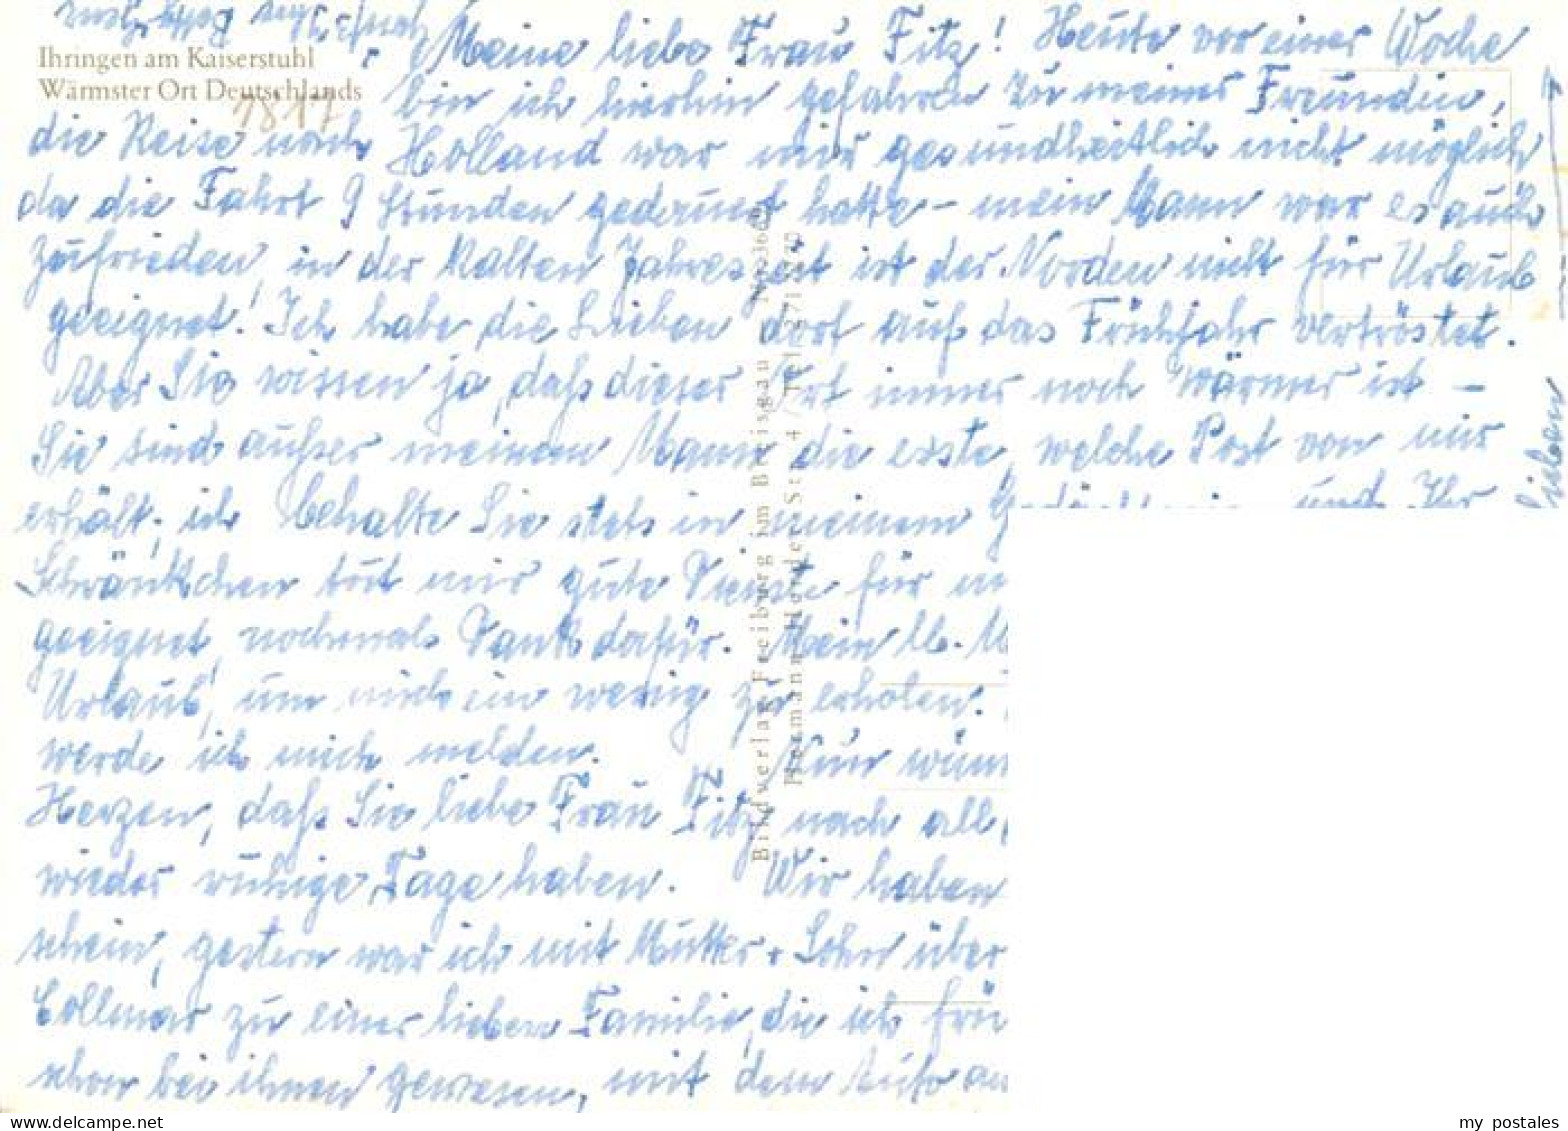 Ihringen am Kaiserstuhl
Wärmster Ort Deutschlands
1817
Meine liebe Frau Fitz! Heute vor einer Woche
bin ich hierhin gefahren zu meiner Freundin,
die Reise nach Holland war mir gesundheitlich nicht möglich
da die Fahrt 9 Stunden gedauert hatte – mein Mann war es auch
zufrieden, in der kalten Jahreszeit ist der Norden nicht für Urlaub
geeignet! Ich habe die Lieben dort auf das Frühjahr vertröstet.
Aber Sie wissen ja, daß dieser Ort immer noch wärmer ist –
Sie sind außer meinem Mann die erste, welche Post von mir
erhält; ich behalte Sie stets in meinem Gedächtnis und Ihr
Schränkchen tut mir gute Dienste für m
geeignet, nochmals Dank dafür. Mein lb. M
Urlaub, um mich ein wenig zu erholen.
werde ich mich melden. Nun wün
Herzen, daß Sie liebe Frau Fitz nach all
wieder ruhige Tage haben. Wir haben
schein, gestern war ich mit Mutter + Sohn über
Collmar zu einer lieben Familie, die ich frü
schon bei ihnen gewesen, mit dem Auto an
lieben
Bildverlag Freiburg im Breisgau
Hermann-Herder-Str. 4 / Tel.
my postales
www.delcampe.net